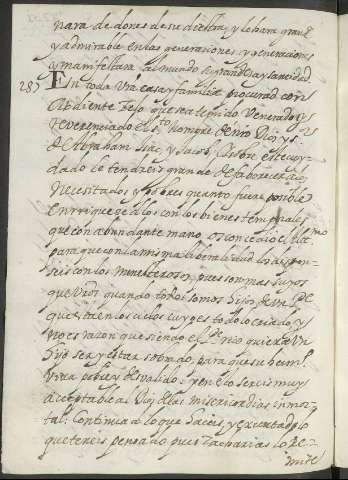 nara de dones de su diestra, y lo hara grande
y admirable en las generaciones, y generaciones
y manifestara al mundo su grandeza y santidad
287 En toda Vra casa y familia procurad con
ardiente zelo que sea temido Venerado y
reverenciado el sto nombre de nro Dios y Sor
de Abraham Isac y Jacob, sobre este cuy-
dado le tendreis grande de faborecer a los
necesitados y pobres quanto fuere posible
enrriqueçedlos con los bienes temporales
que con abundante mano os conçedio el Altmo
para que con la misma liberalidad los dispen-
seis con los menesterosos, pues son mas suyos
que Vros quando todos somos hijos de un Pe
que esta en los cielos cuyo es todo lo criado, y
no es razon que siendo el Pe rico quiera un
hijo ser y estar sobrado, para que su hermo
viva pobre y desvalido, y en esto sereis muy
acceptable al Dios de las misericordias inmor-
tal: Continua lo que haceis, y executad lo
que teneis pensado pues Zacharias lo re-
mite